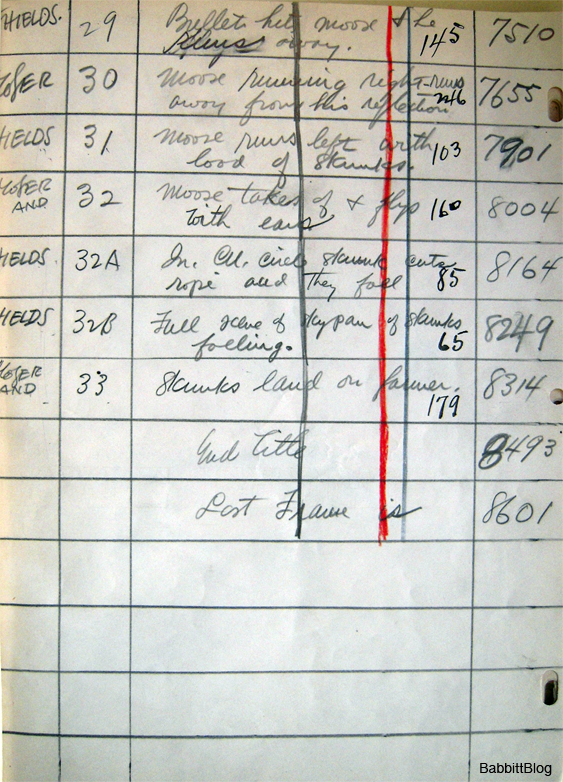 HIELDS. 29 Bullet hits moose & he 145 7510
away.
30 Moose running right runs 246 7655
away from his reflection
IELDS 31 Moose runs left with 103 7901
load of skunks.
AND 32 Moose takes of & flys 160 8004
with ears
IELDS. 32A In. CU. circle skunk cuts 85 8164
rope and they fall
IELDS 32B Full scene of sky pan of skunks 65 8249
falling.
AND 33 Skunks land on farmer. 179 8314
End Title 8493
Last Frame is 8601
BabbittBlog